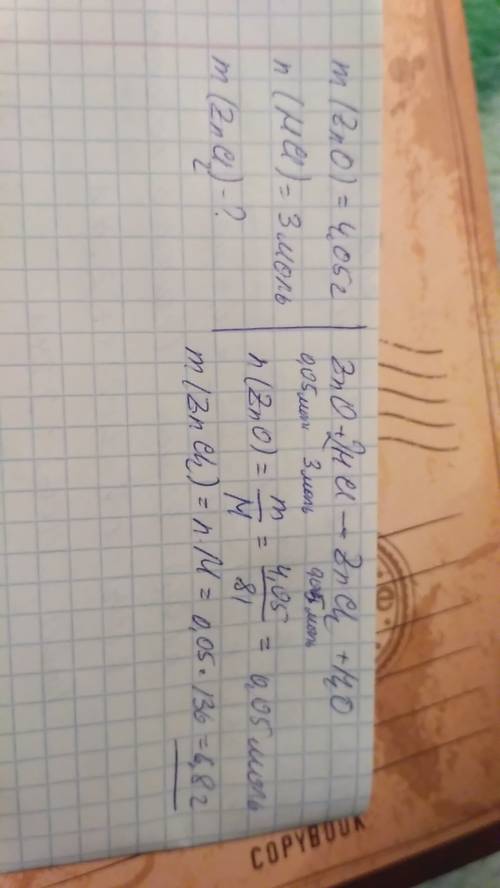 m (ZnO) = 4,05г
n (HCl) = 3 моль
m (ZnCl₂) - ?
ZnO + 2HCl → ZnCl₂ + H₂O
0,05 моль 3 моль 0,05 моль
n (ZnO) = m/M = 4,05/81 = 0,05 моль
m (ZnCl₂) = n·M = 0,05·136 = 6,8г
COPYBOOK